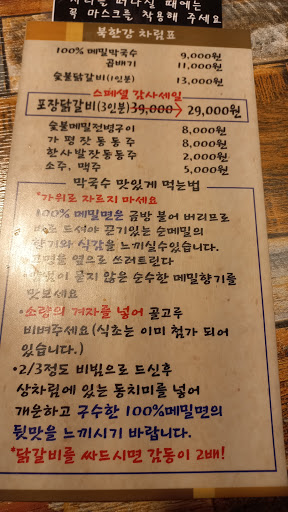 때에는
꼭 마스크를 착용해 주세요
북한강 차림표
100% 메밀막국수 9,000원
곱배기 11,000원
숯불닭갈비(1인분) 13,000원
스페셜 감사세일
포장닭갈비(3인분) 39,000→ 29,000원
숯불메밀전병구이 8,000원
가평잣동동주 8,000원
한사발잣동동주 2,000원
소주, 맥주 5,000원
막국수 맛있게 먹는법
*가위로 자르지 마세요
100% 메밀면은 금방 불어 버리므로
드셔야 끈기있는 순메밀의
향기와 식감을 느끼실수있습니다.
옆으로 쓰러트린다
묻지 않은 순수한 메밀향기를
맛보세요
•소량의 겨자를 넣어 골고루
비벼주세요(식초는 이미 첨가 되어
있습니다.)
•2/3정도 비빔으로 드신후
상차림에 있는 동치미를 넣어
개운하고 구수한 100%메밀면의
뒷맛을 느끼시기 바랍니다.
*닭갈비를 싸드시면 감동이 2배!